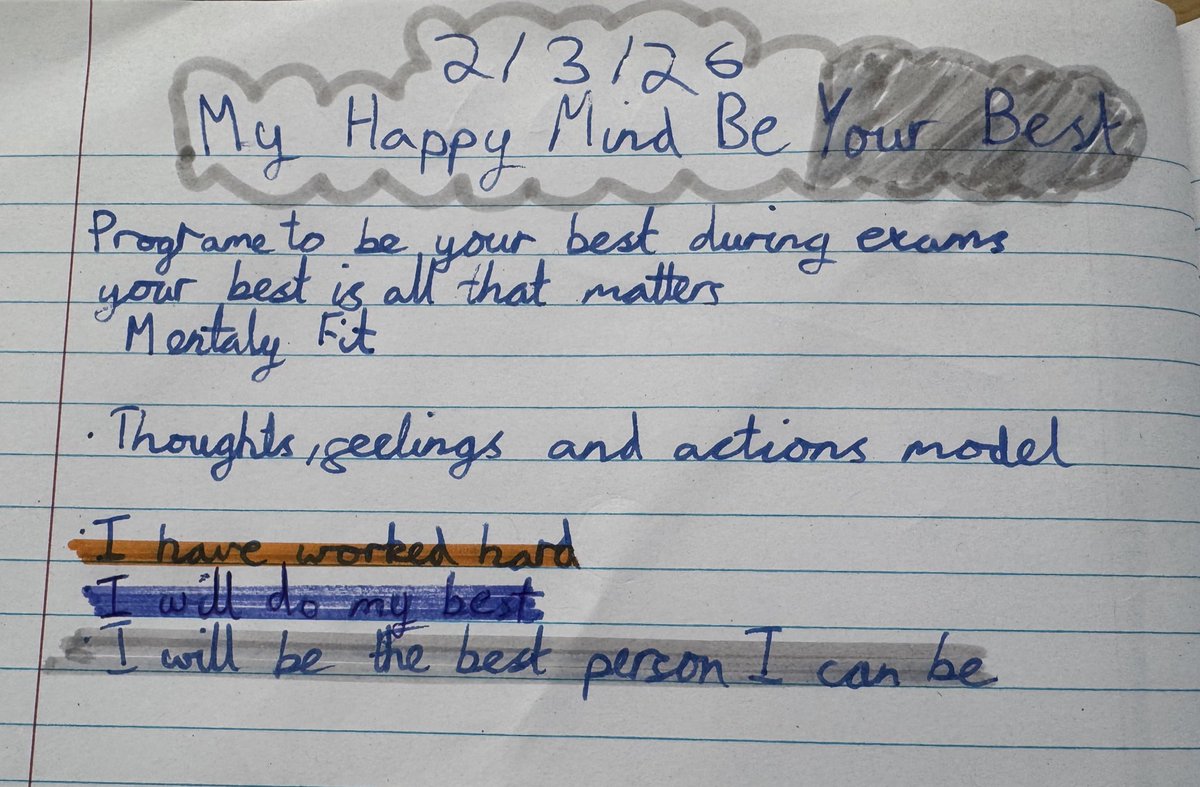 2/3/26
My Happy Mind Be Your Best
Programe to be your best during exams
your best is all that matters
Mentaly Fit
· Thoughts, feelings and actions model
· I have worked hard
· I will do my best
· I will be the best person I can be